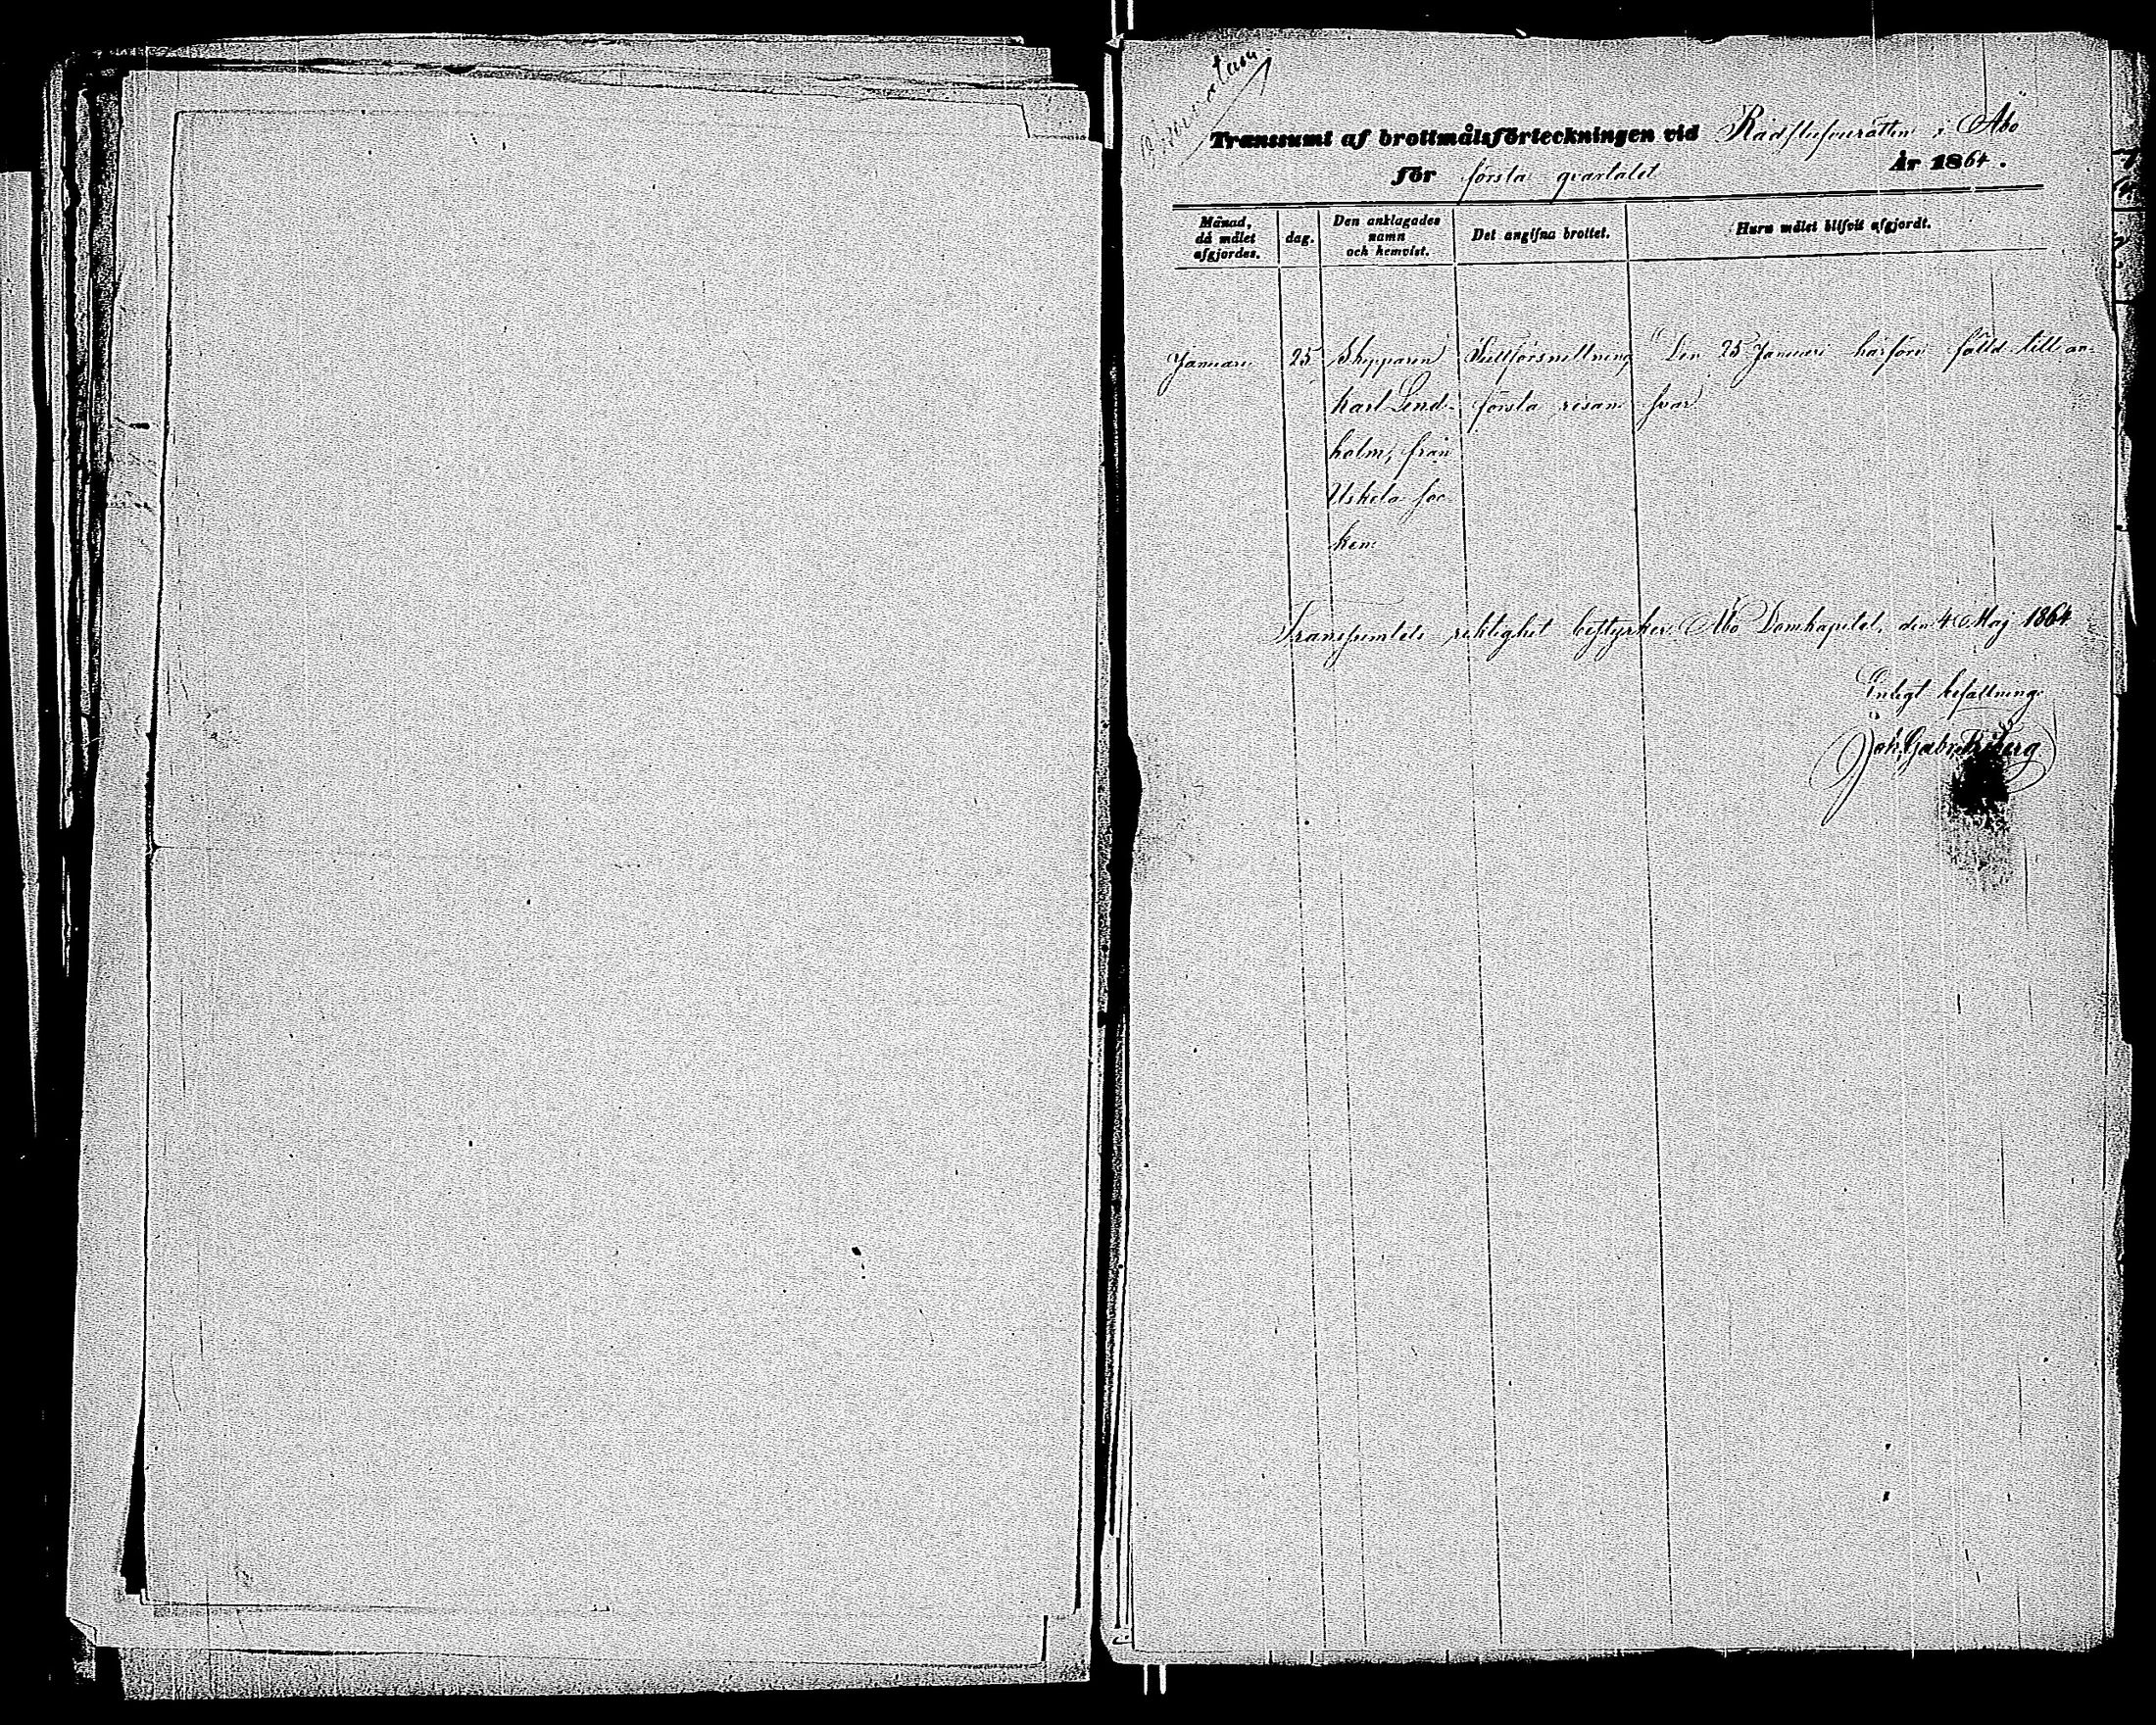 Transsumt af brottmålsförteckningen vid Rådstufvurätten i Åbo
för första qvartalet År 1864.
Månad, då målet afgjordes. dag. Den anklagades namn och hemvist. Det angifna brottet. Huru målet blifvit afgjordt.
Januari 25 Skepparen Tullförsnillning Den 25 Januari härföre fälld till an-
Karl Lind- första resan svar
holm, från
Uskela soc
ken.
Transsumtets riktighet bestyrker. Åbo Domkapitel, den 4 Maj 1864
Enligt befallning:
Joh. Gabr.